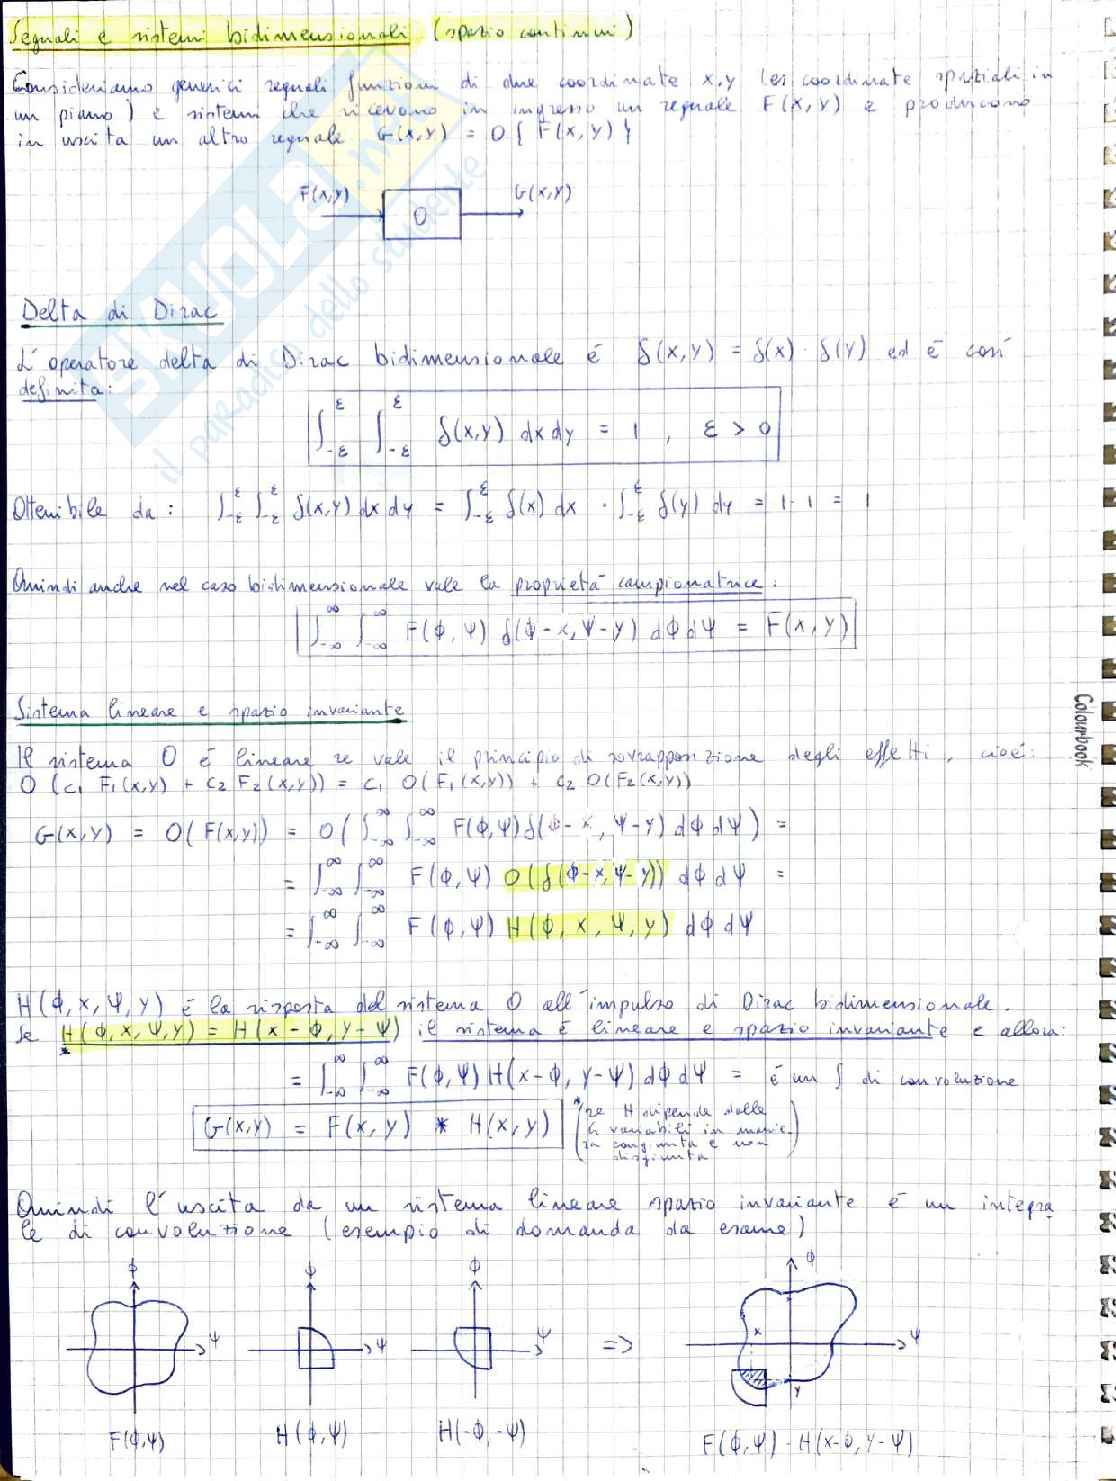 Segnali e sistemi bidimensionali (spazio continui)
Consideriamo generici segnali funzioni di due coordinate x,y (es coordinate spaziali in
un piano) e sistemi che ricevono in ingresso un segnale F(x,y) e producono
in uscita un altro segnale G(x,y) = O{F(x,y)}
F(x,y) O G(x,y)
SKUOLA.net
il paradiso dello studente
Delta di Dirac
L'operatore delta di Dirac bidimensionale è δ(x,y) = δ(x)·δ(y) ed è così
definita:
∫_{-ε}^{ε} ∫_{-ε}^{ε} δ(x,y) dx dy = 1 , ε > 0
Ottenibile da: ∫_{-ε}^{ε} ∫_{-ε}^{ε} δ(x,y) dx dy = ∫_{-ε}^{ε} δ(x) dx · ∫_{-ε}^{ε} δ(y) dy = 1·1 = 1
Quindi anche nel caso bidimensionale vale la proprietà campionatrice:
∫_{-∞}^{∞} ∫_{-∞}^{∞} F(ϕ,ψ) δ(ϕ-x,ψ-y) dϕ dψ = F(x,y)
Sistema lineare e spazio invariante
Il sistema O è lineare se vale il principio di sovrapposizione degli effetti, cioè:
O(c₁ F₁(x,y) + c₂ F₂(x,y)) = c₁ O(F₁(x,y)) + c₂ O(F₂(x,y))
G(x,y) = O(F(x,y)) = O(∫_{-∞}^{∞} ∫_{-∞}^{∞} F(ϕ,ψ) δ(ϕ-x,ψ-y) dϕ dψ) =
= ∫_{-∞}^{∞} ∫_{-∞}^{∞} F(ϕ,ψ) O(δ(ϕ-x,ψ-y)) dϕ dψ =
= ∫_{-∞}^{∞} ∫_{-∞}^{∞} F(ϕ,ψ) H(ϕ,x,ψ,y) dϕ dψ
H(ϕ,x,ψ,y) è la risposta del sistema O all'impulso di Dirac bidimensionale.
Se H(ϕ,x,ψ,y) = H(x-ϕ,y-ψ) il sistema è lineare e spazio invariante e allora:
*
= ∫_{-∞}^{∞} ∫_{-∞}^{∞} F(ϕ,ψ) H(x-ϕ,y-ψ) dϕ dψ = è un ∫ di convoluzione
G(x,y) = F(x,y) * H(x,y)
* (se H dipende dalle
4 variabili in manie-
ra congiunta e non
disgiunta)
Quindi l'uscita da un sistema lineare spazio invariante è un integra
le di convoluzione (esempio di domanda da esame)
ϕ ψ ϕ ϕ
ψ ψ ψ => x ψ
y
F(ϕ,ψ) H(ϕ,ψ) H(-ϕ,-ψ) F(ϕ,ψ)·H(x-ϕ,y-ψ)
Colourbook